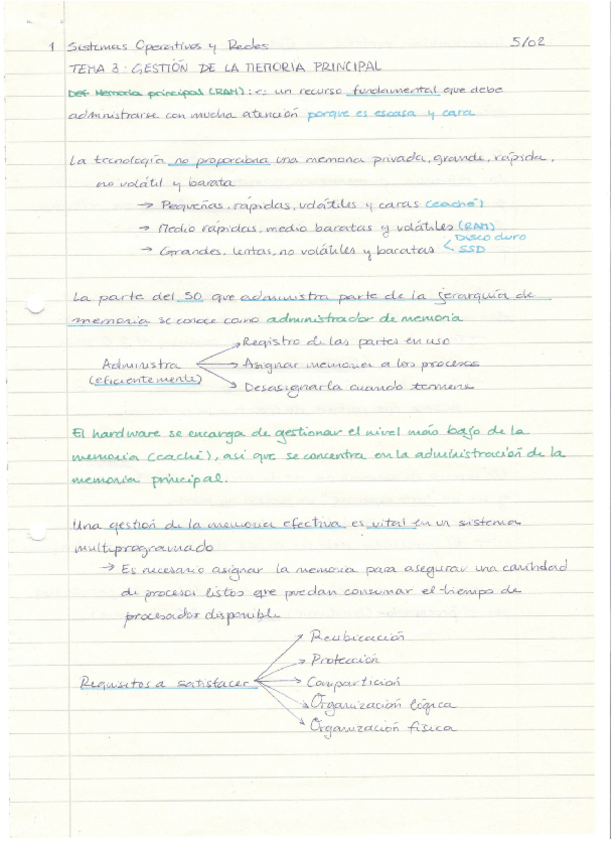 1 Sistemas Operativos y Redes 5/02
TEMA 3: GESTIÓN DE LA MEMORIA PRINCIPAL
Def Memoria principal (RAM): es un recurso fundamental que debe
administrarse con mucha atención porque es escasa y cara
La tecnología no proporciona una memoria privada, grande, rápida,
no volátil y barata
→ Pequeñas, rápidas, volátiles y caras (caché)
→ Medio rápidas, medio baratas y volátiles (RAM)
→ Grandes, lentas, no volátiles y baratas < Disco duro
SSD
La parte del SO que administra parte de la jerarquía de
memoria se conoce como administrador de memoria
Registro de las partes en uso
Administra → Asignar memoria a los procesos
(eficientemente) Desasignarla cuando termine
El hardware se encarga de gestionar el nivel más bajo de la
memoria (caché), así que se concentra en la administración de la
memoria principal.
Una gestión de la memoria efectiva es vital en un sistema
multiprogramado
→ Es necesario asignar la memoria para asegurar una cantidad
de procesos listos que puedan consumar el tiempo de
procesador disponible
Reubicación
Protección
Requisitos a satisfacer → Compartición
Organización lógica
Organización física